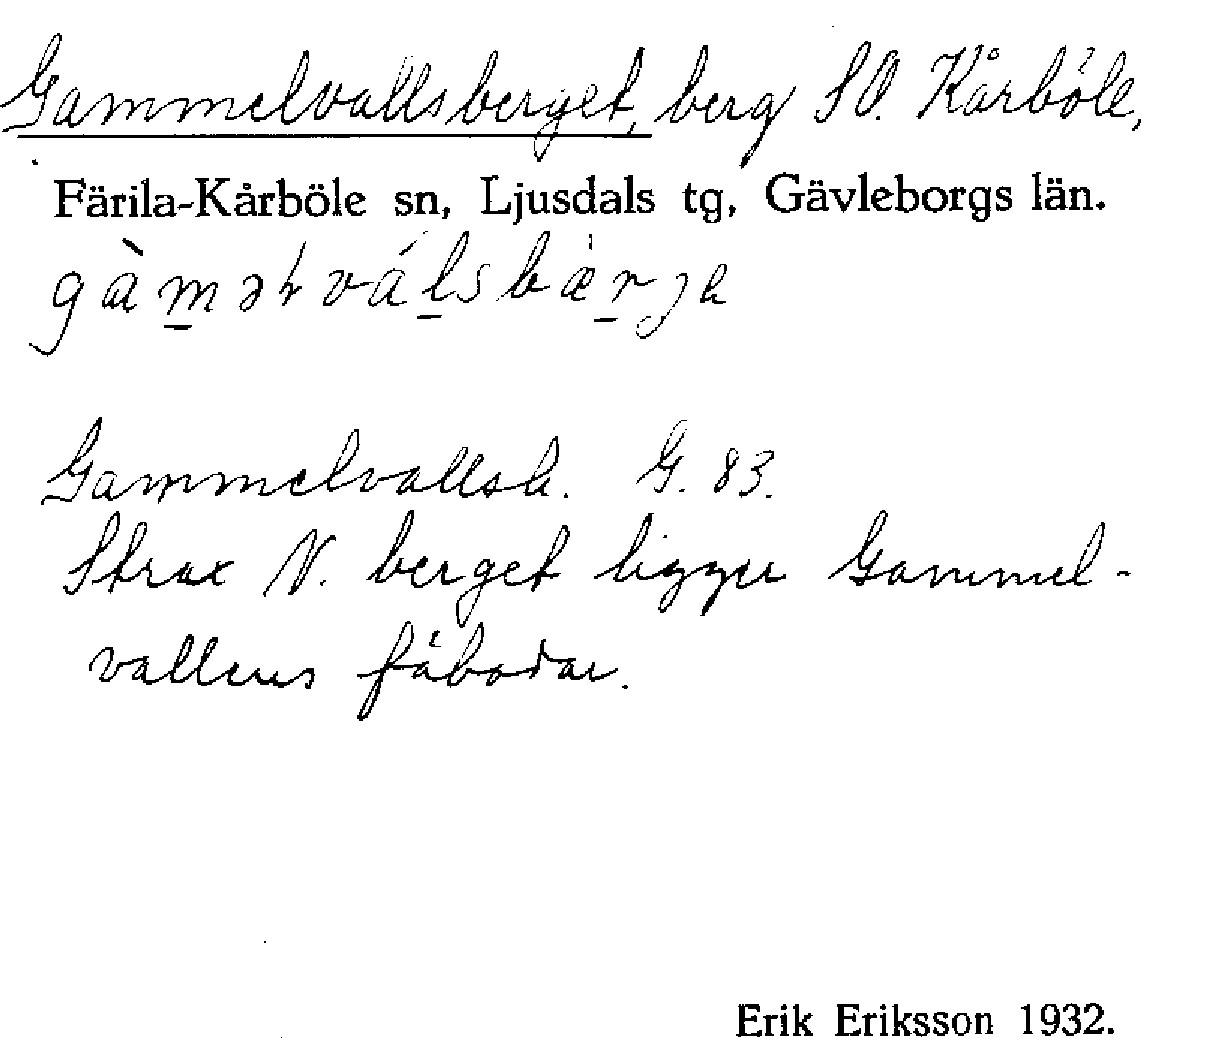 Gammelvallsberget, berg SO. Kårböle,
Färila-Kårböle sn, Ljusdals tg, Gävleborgs län.
Gammelvallsb. G. 83.
Strax N. berget ligger Gammel-
vallens fäbodar.
Erik Eriksson 1932.